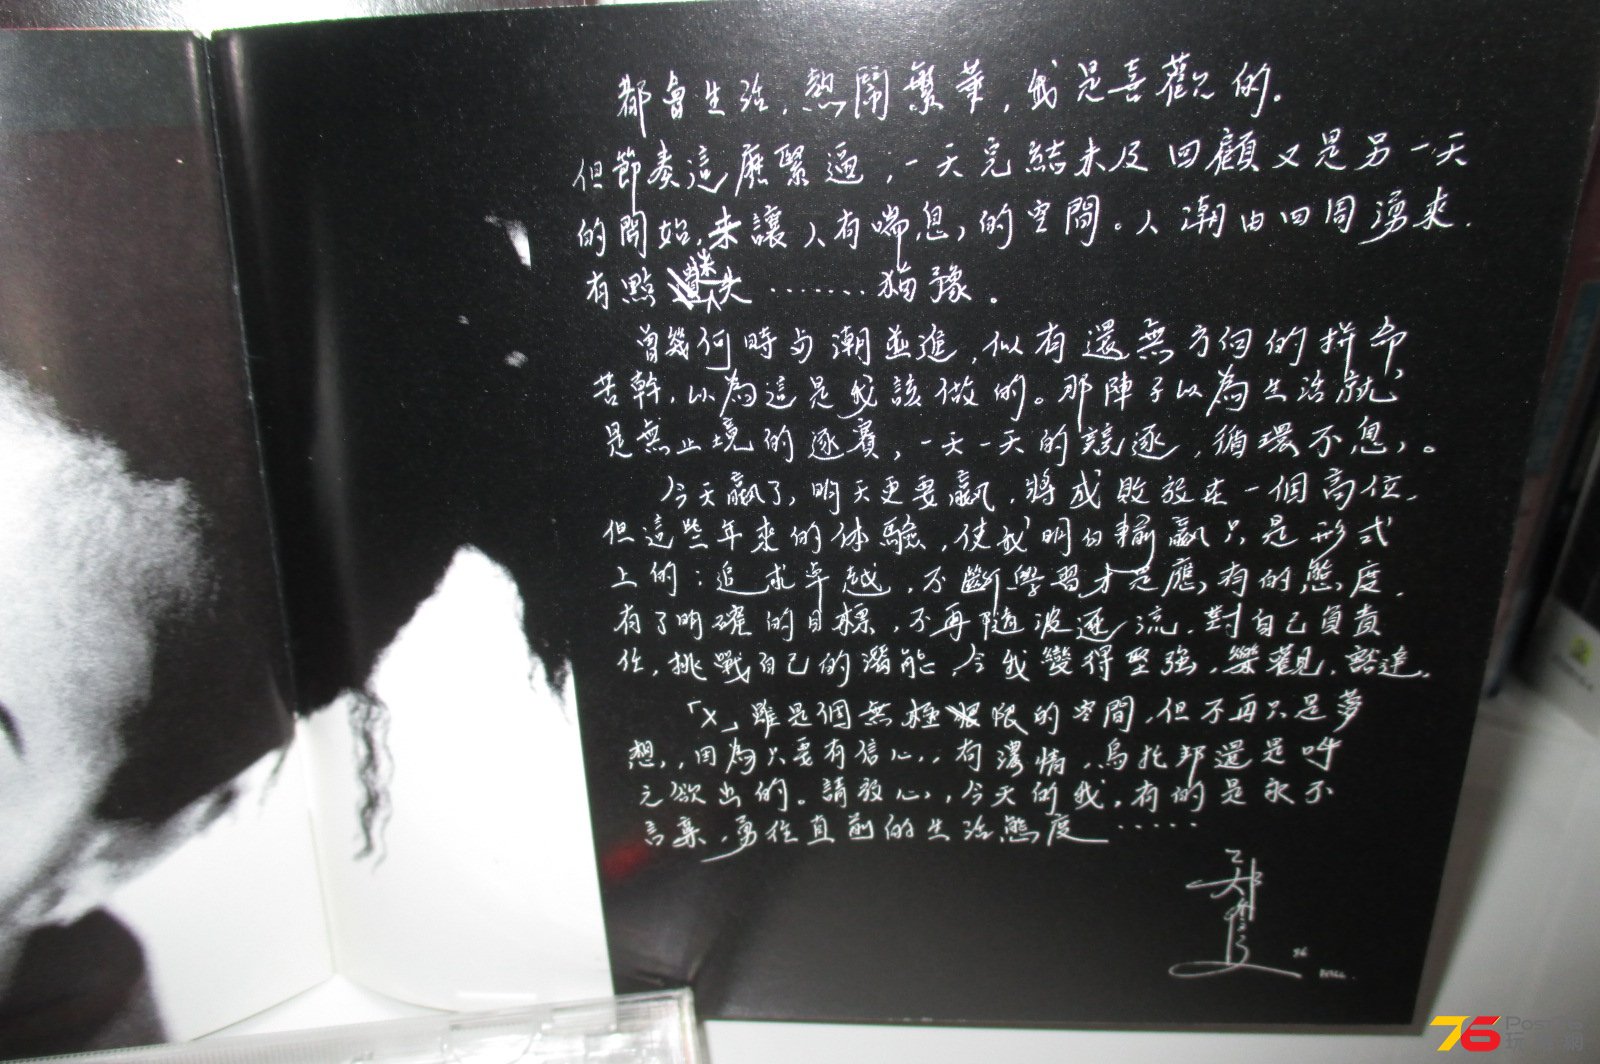 都會生活，熱鬧繁華，我是喜歡的。
但節奏這麽緊逼，一天完結未及回顧又是另一天
的開始，未讓人有喘息的空間。人潮由四周湧來，
有點迷失……猶豫。
曾幾何時與潮並進，似有還無方向的拼命
苦幹，以為這是我該做的。那陣子以為生活就
是無止境的逐賽，一天一天的競逐，循環不息。
今天贏了，明天更要贏，將成敗放在一個高位，
但這些年來的体驗，使我明白輸贏只是形式
上的；追求卓越，不斷學習才是應有的態度，
有了明確的目標，不再隨波逐流，對自己負責
任，挑戰自己的潛能，令我變得堅強，樂觀，豁達。
「X」雖是個無極限的空間，但不再只是夢
想，因為只要有信心，有濃情，烏托邦還是呼
之欲出的。請放心，今天的我，有的是永不
言棄，勇往直前的生活態度……
鄭
76